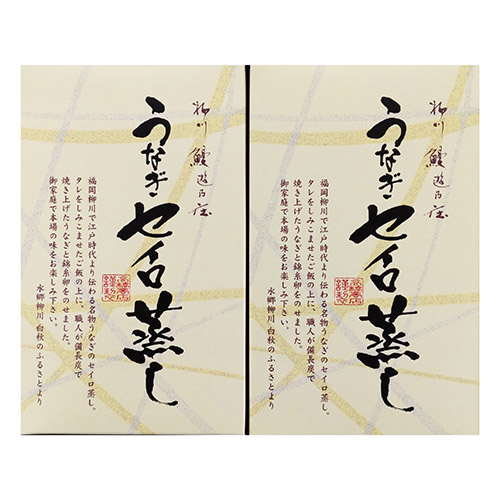 柳川 鰻遊乃庄
うなぎセイロ蒸し
福岡柳川で江戸時代より伝わる名物うなぎのセイロ蒸し。
タレをしみこませたご飯の上に、職人が備長炭で
焼き上げたうなぎと錦糸卵をのせました。
御家庭で本場の味をお楽しみ下さい。
水郷柳川 白秋のふるさとより
柳川 鰻遊乃庄
うなぎセイロ蒸し
福岡柳川で江戸時代より伝わる名物うなぎのセイロ蒸し。
タレをしみこませたご飯の上に、職人が備長炭で
焼き上げたうなぎと錦糸卵をのせました。
御家庭で本場の味をお楽しみ下さい。
水郷柳川 白秋のふるさとより